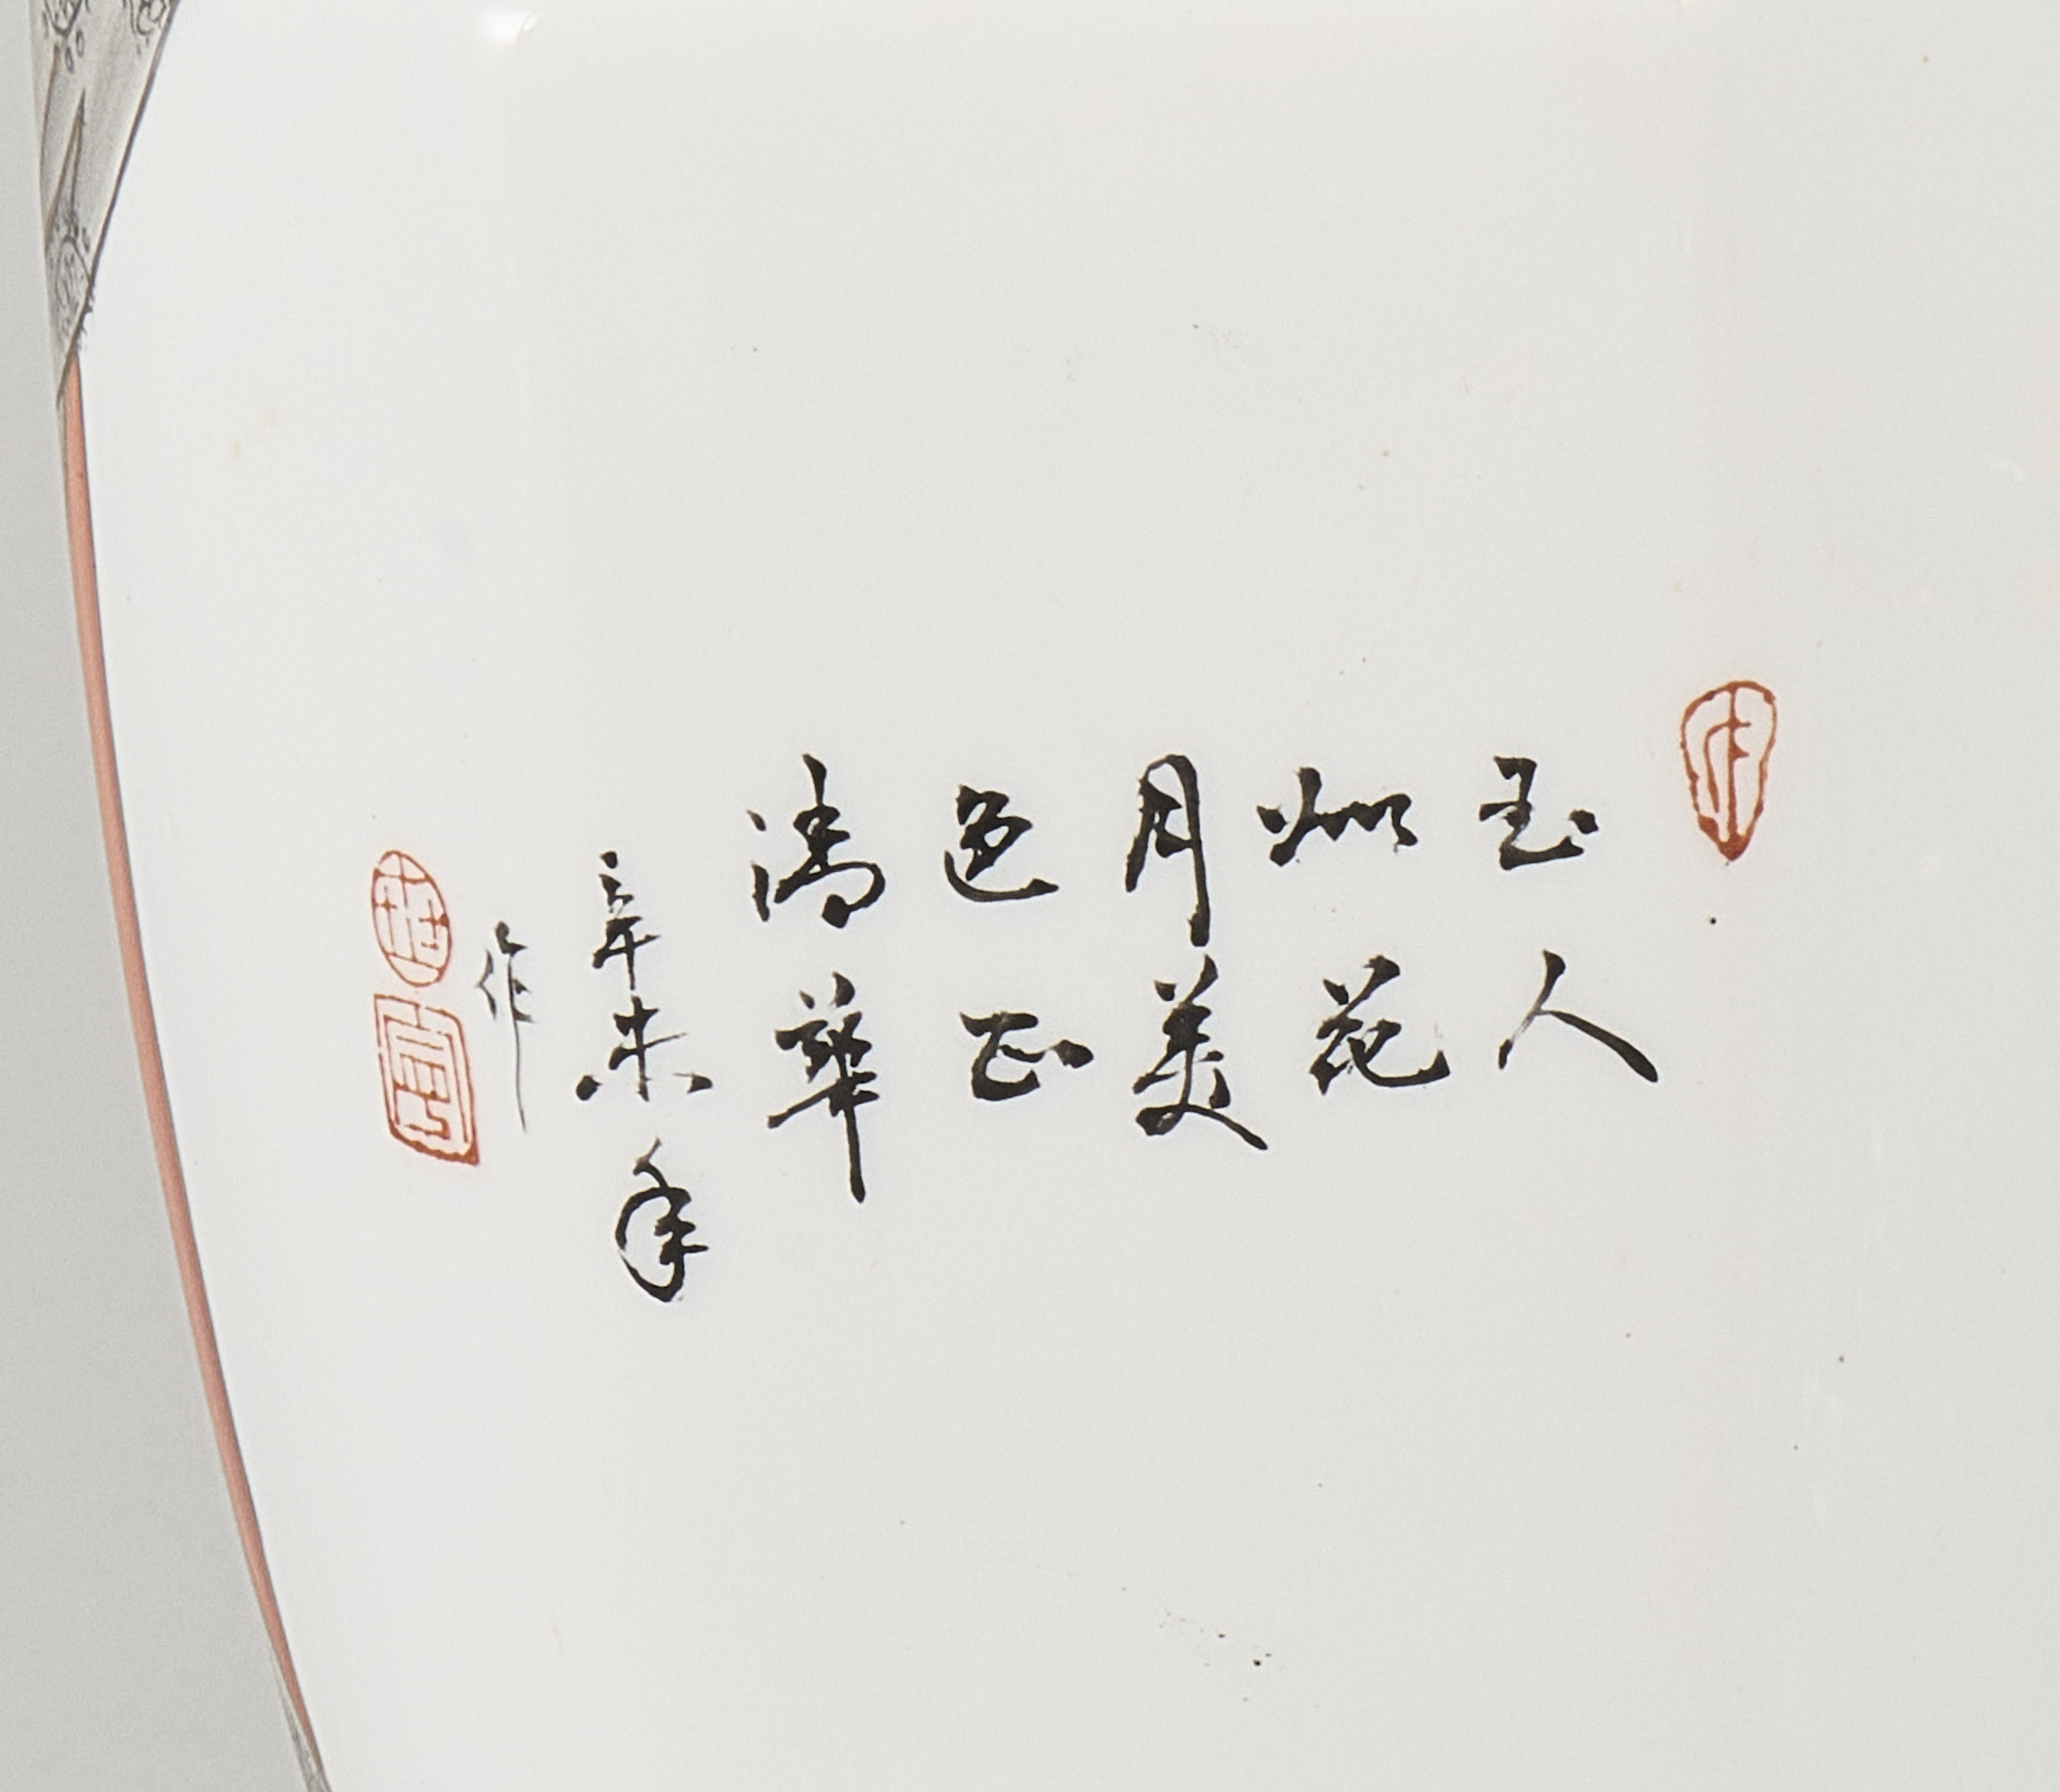 玉人
如花
月美
色正
清華
辛未年
作